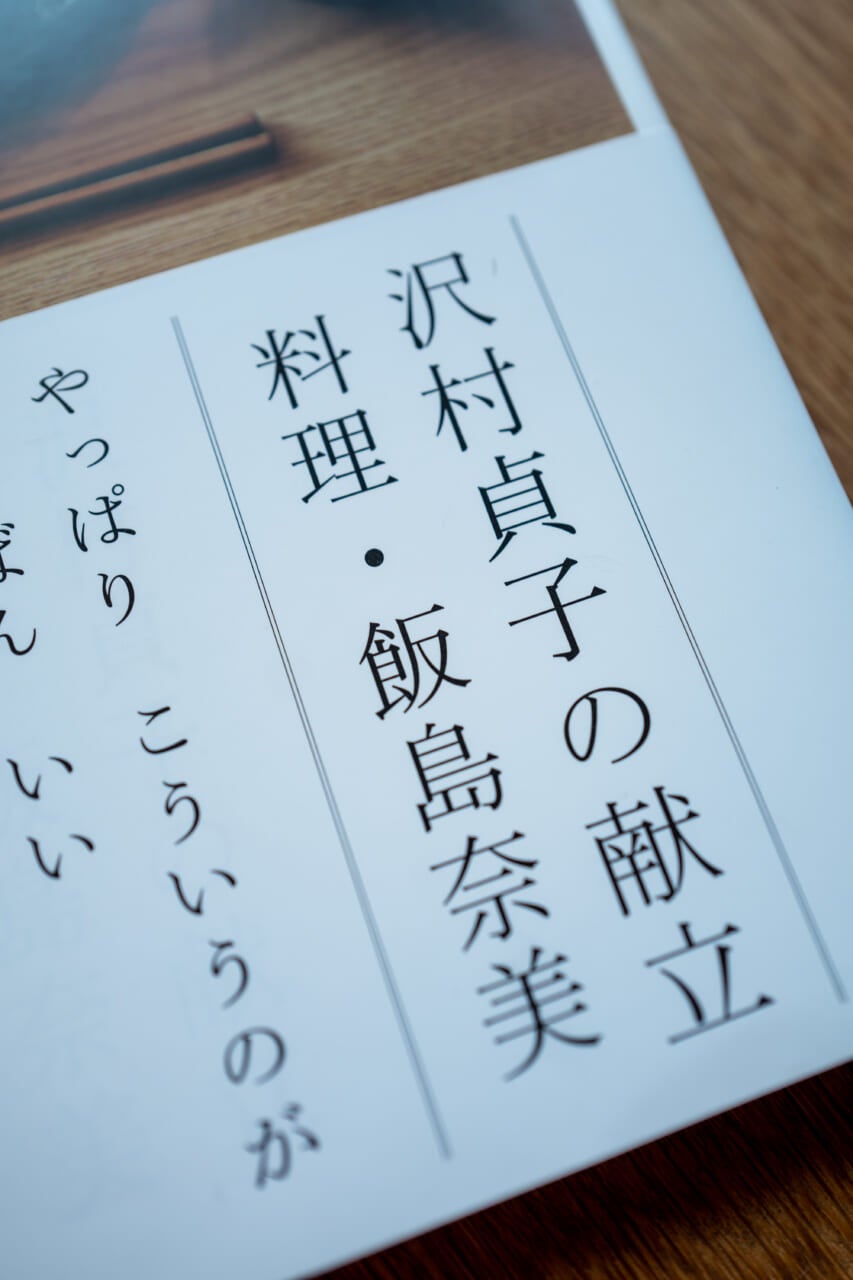 沢村貞子の献立
料理・飯島奈美
やっぱり こういうのが
ばん いい